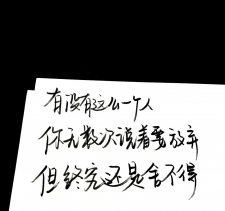 有没有这么一个人
你无数次说着要放弃
但终究还是舍不得